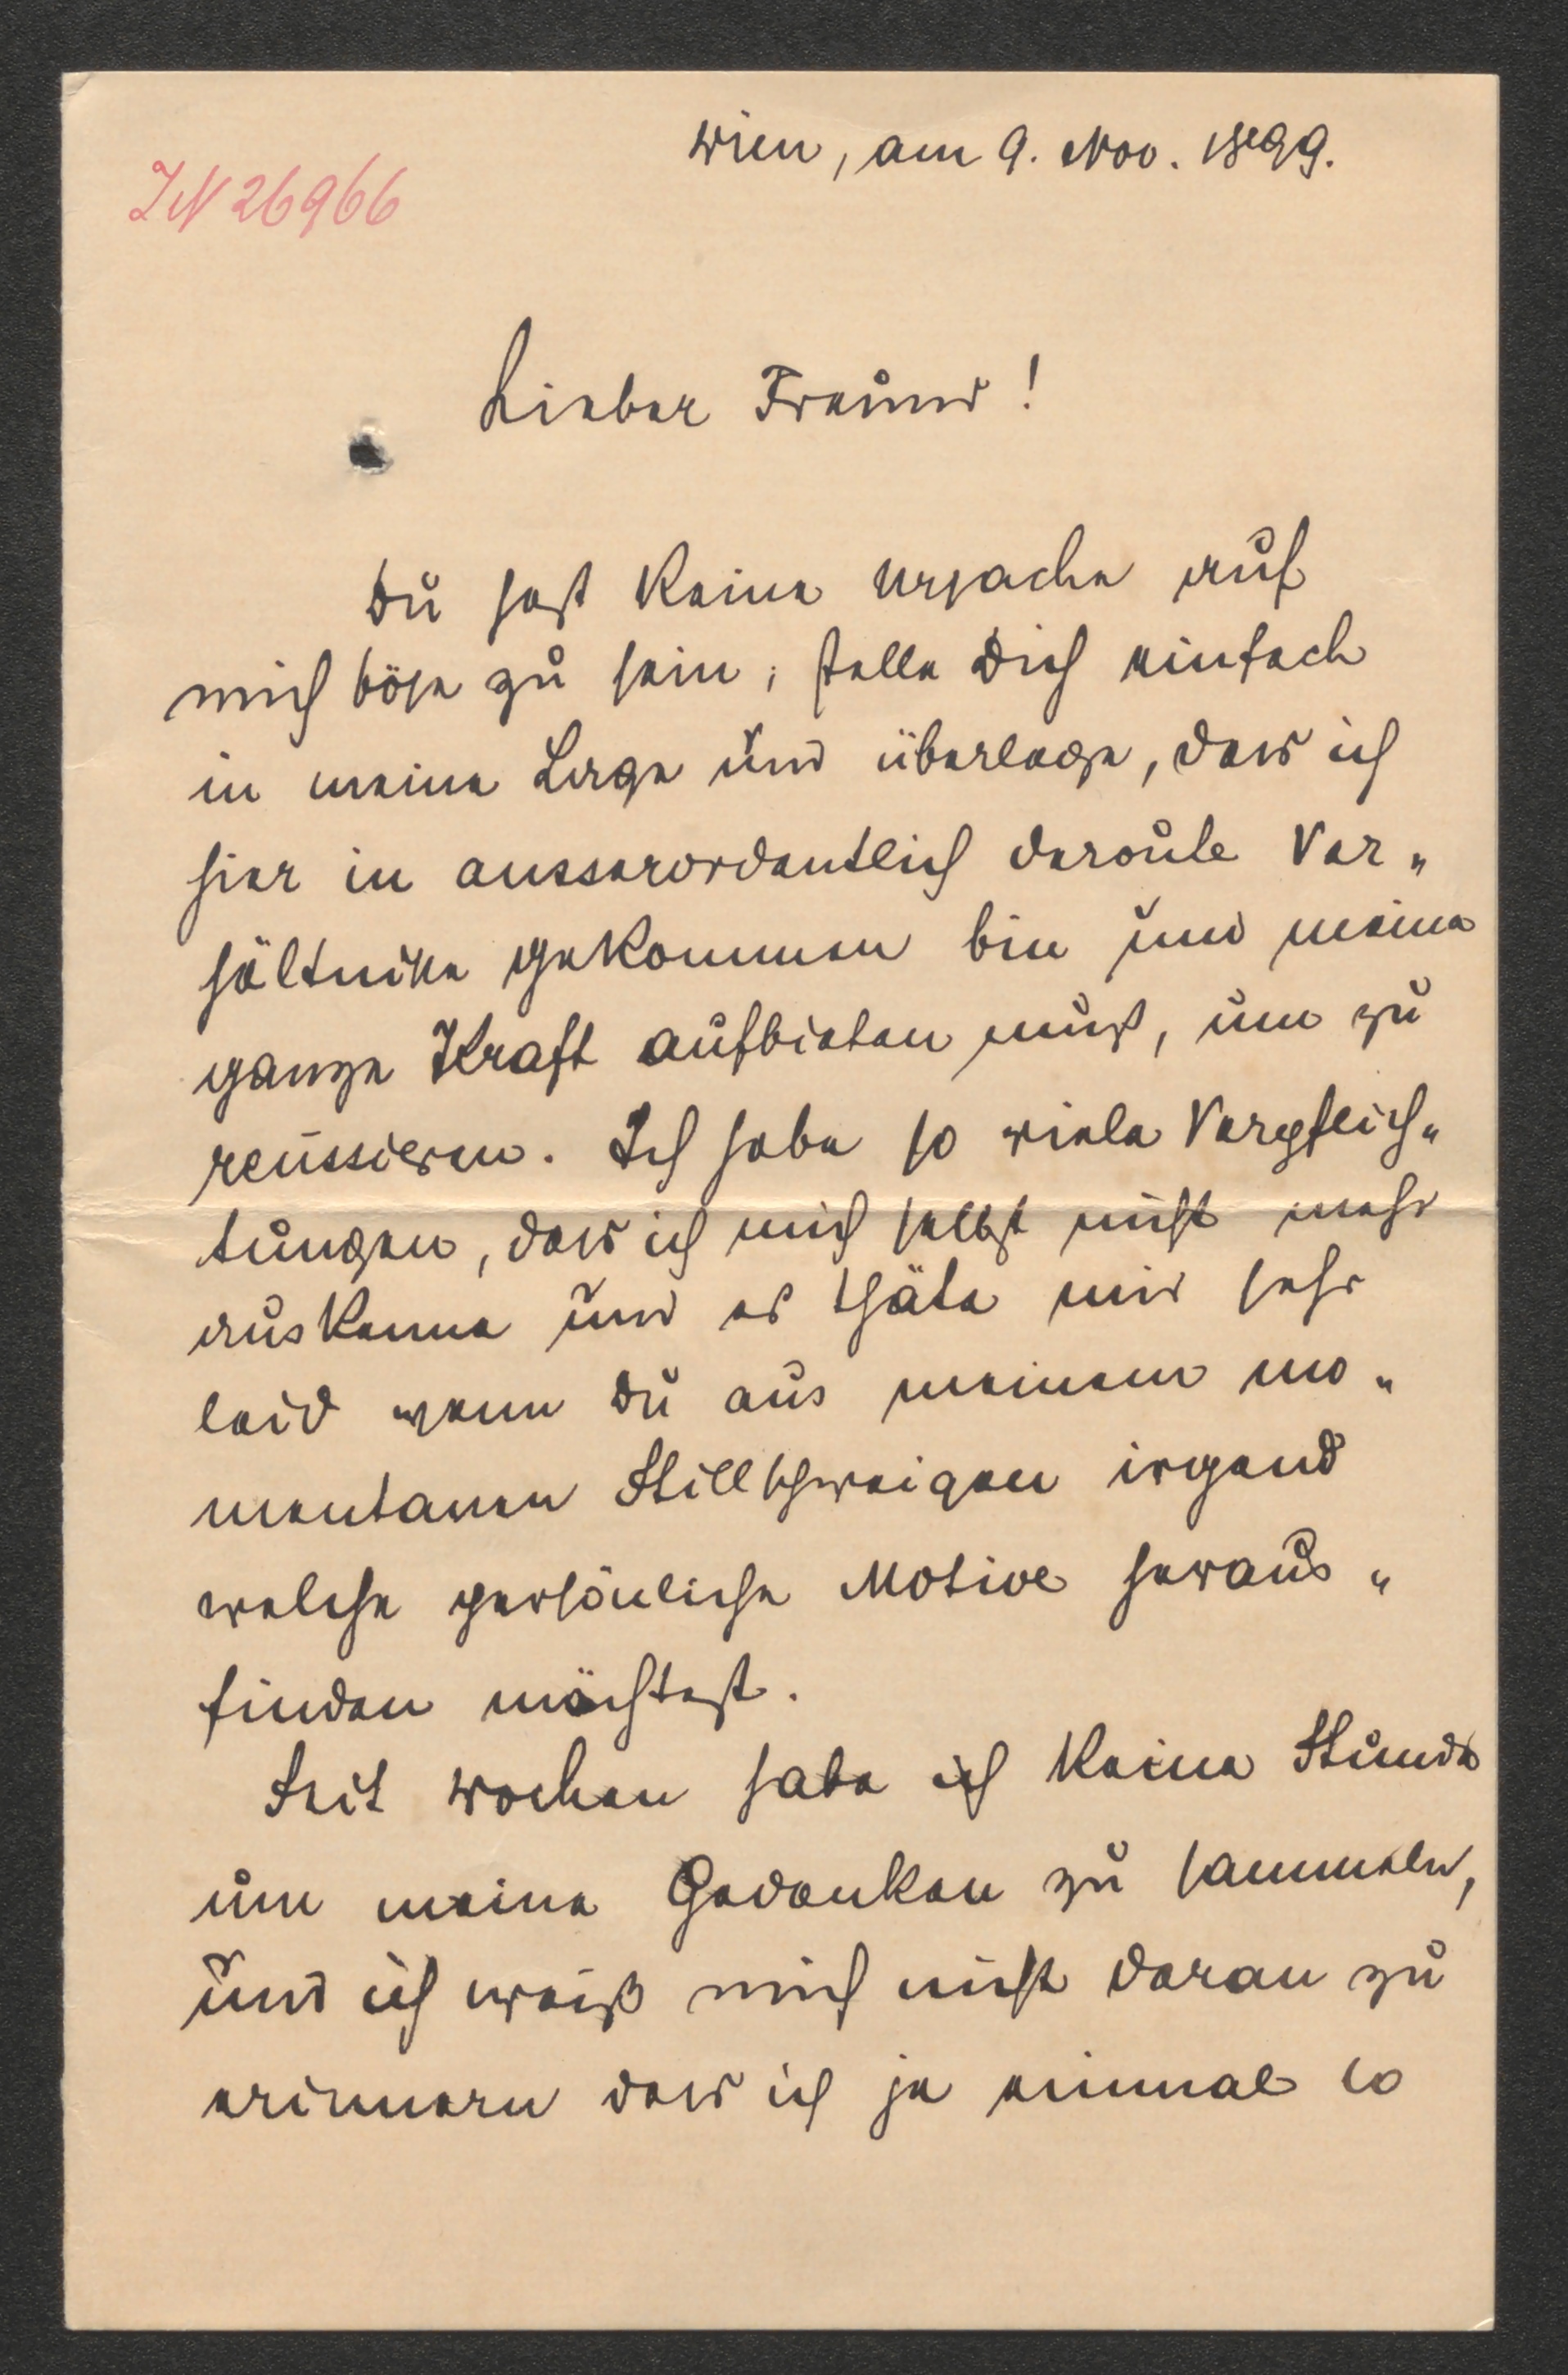 Wien, am 9. Nov. 1899.
IN 26966
Lieber Freund!
Du hast keine Ursache auf
mich böse zu sein; stelle Dich einfach
in meine Lage und überlege, dass ich
hier in ausserordentlich Ver„
hältnisse gekommen bin und meine
ganze Kraft aufbieten muß, um zu
reüssieren. Ich habe so viele Verpflich„
tungen, dass ich mich selbst nicht mehr
auskenne und es thäte mir sehr
leid wenn Du aus meinem mo„
mentanen Stillschweigen irgend
welche persönliche Motive heraus„
finden möchtest.
Seit Wochen habe ich keine Stunde
um meine Gedanken zu sammeln,
und ich weiß mich nicht daran zu
erinnern dass ich je einmal so